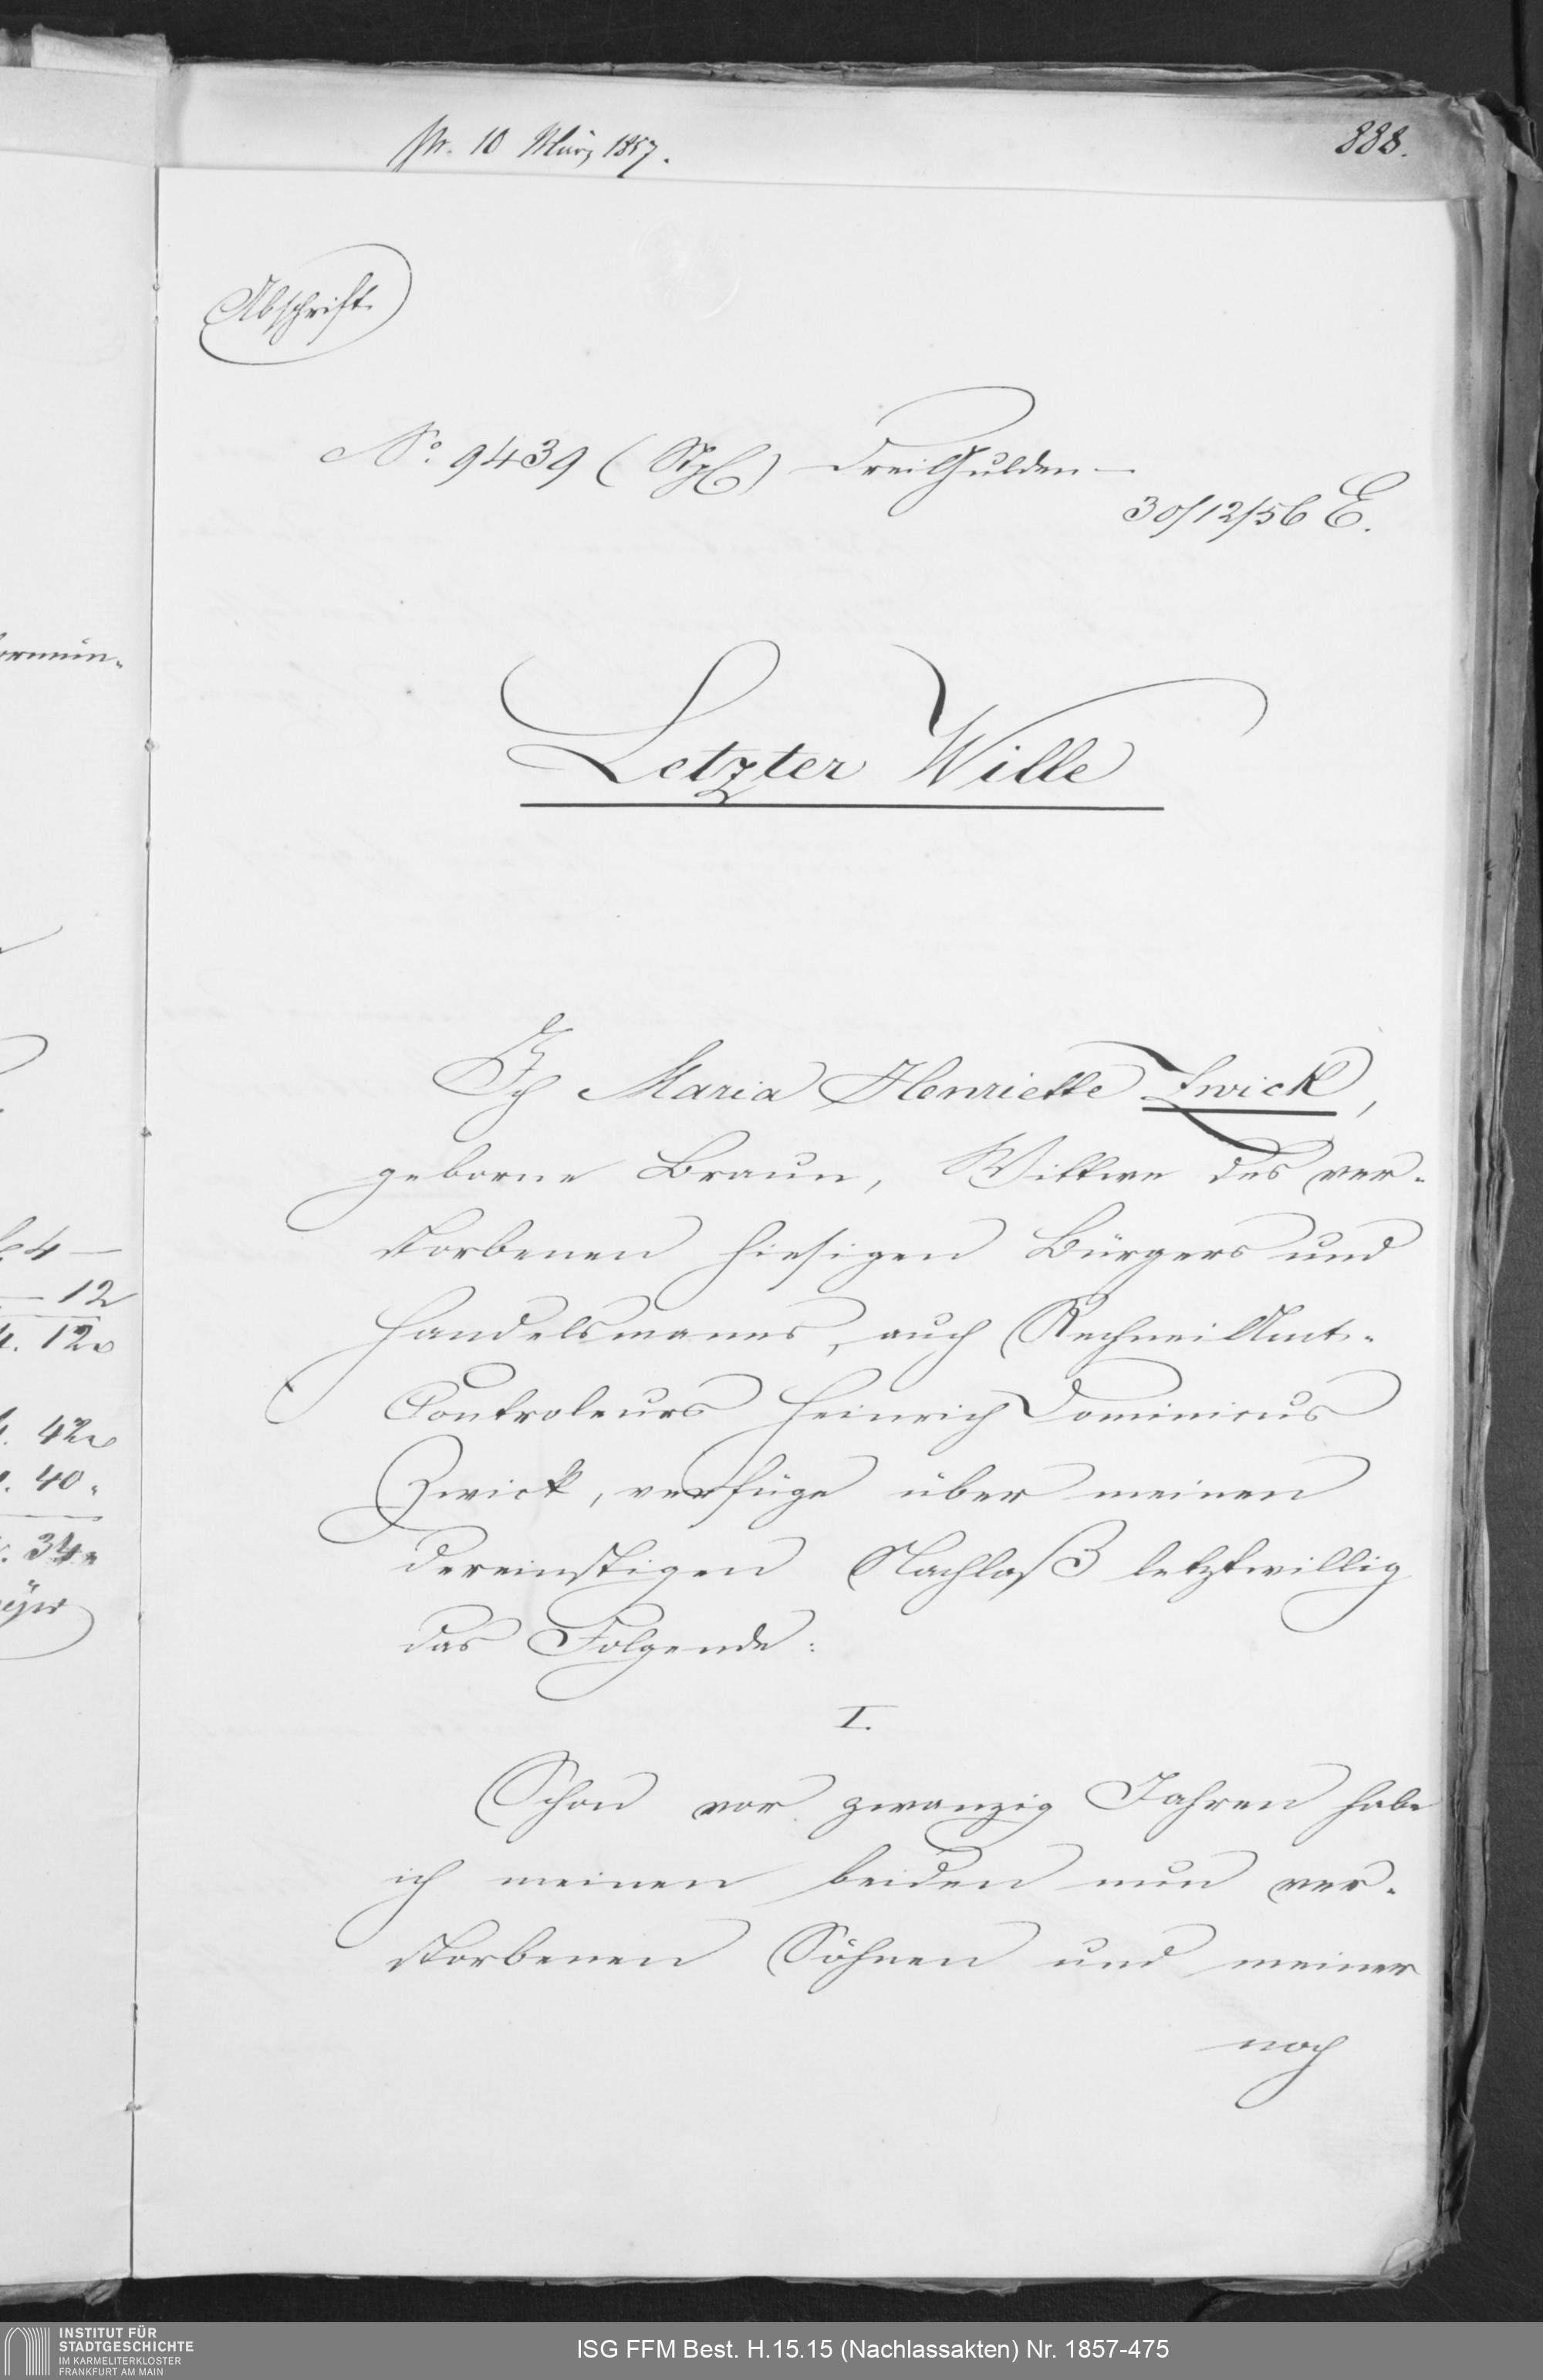 pr. 10 März 1857.
888.
Abschrift.
No. 9439 (Stpl) Drei Gulden —
30/12/56 E.
Letzter Wille
Ich Maria Henriette Zwick,
geborne Braun, Wittwe des ver-
storbenen hiesigen Bürgers und
Handelsmanns, auch Rechnei Amt-
Controleurs Heinrich Dominicus
Zwick, verfüge über meinen
dereinstigen Nachlaß letztwillig
das Folgende:
I.
Schon vor zwanzig Jahren habe
ich meinen beiden nun ver-
storbenen Söhnen und meiner
noch
12
12
42
40
34
INSTITUT FÜR
STADTGESCHICHTE
IM KARMELITERKLOSTER
FRANKFURT AM MAIN
ISG FFM Best. H.15.15 (Nachlassakten) Nr. 1857-475